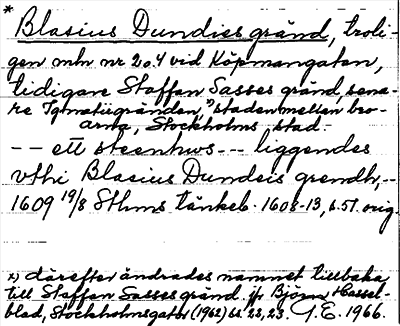 * Blasius Dundies gränd, troli-
gen mln nr 2 o. 4 vid Köpmangatan,
tidigare Staffan Sasses gränd, sena-
re Ignatiigränden,x) staden mellan bro-
arna, Stockholms stad. -
-- ett steenhws --- liggendes
vthi Blasius Dundeis grendh, --
1609 19/8 Sthms tänkeb. 1608-13, s. 57. orig.
x) därefter ändrades namnet tillbaka
till Staffan Sasses gränd. jfr Björn Hassel-
blad, Stockholmsgator (1962) s. 22, 23. G.E. 1966.